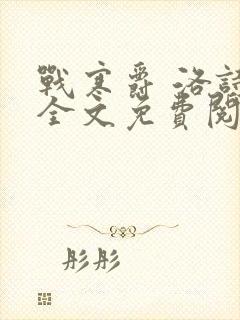 戰寒爵 洛詩
全文免費閱
彤彤